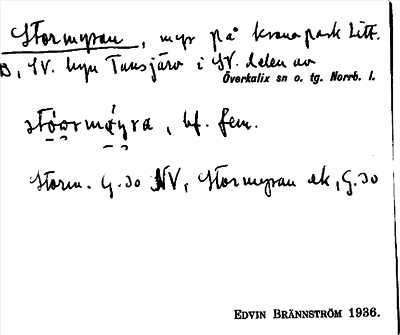 Stormyran, myr på kronopark Litt.
B, SV. byn Tansjärv i SV. delen av
Överkalix sn o. tg. Norrb. l.
stóormǿyra, bf. fem.
Storm. G.30 NV, Stormyran ek, G.30
EDVIN BRÄNNSTRÖM 1936.